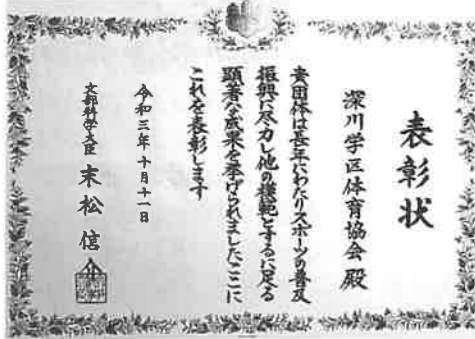 表彰状
深川学区体育協会殿
貴団体は長年にわたりスポーツの普及
振興に尽力し他の模範とするに足る
顕著な成果を挙げられましたここに
これを表彰します
令和三年十月十一日
文部科学大臣 末松信